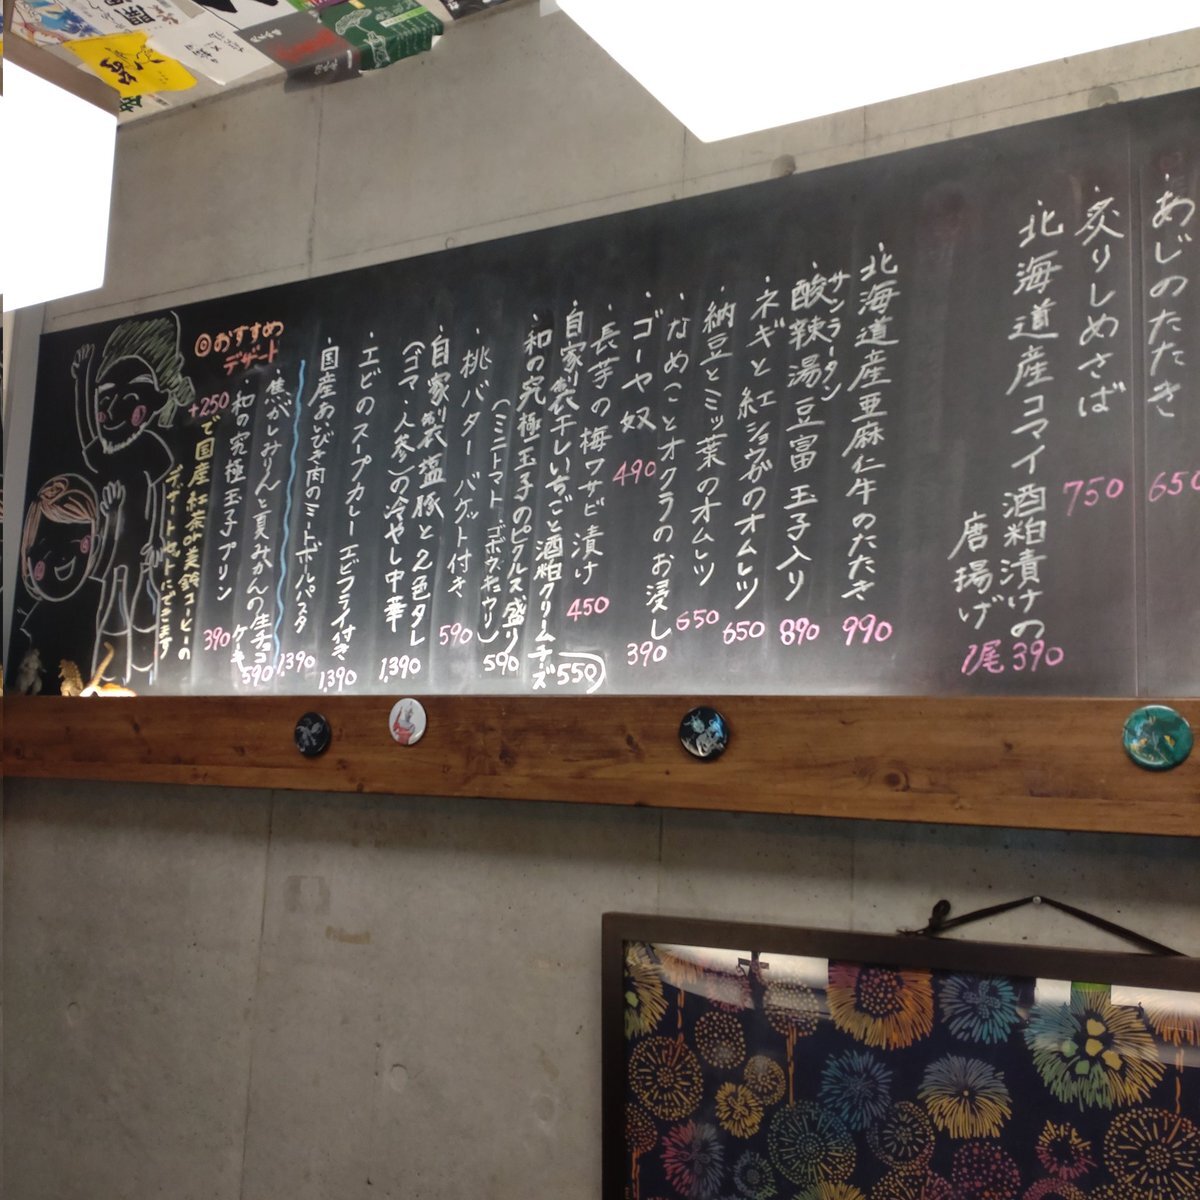 ・あじのたたき 650
・炙りしめさば 750
・北海道産コマイ酒粕漬けの
唐揚げ 1尾390
・北海道産亜麻仁牛のたたき 990
サンラータン
・酸辣湯豆富 玉子入り 890
・ネギと紅ショウガのオムレツ 650
・納豆とミツ葉のオムレツ 650
・なめことオクラのお浸し 390
・ゴーヤ奴 490
・長芋の梅ワサビ漬け 450
・自家製干しいちごと酒粕クリームチーズ 550
・和の究極玉子のピクルス盛り
(ミニトマト ゴボウ キュウリ) 590
・桃バター バゲット付き 590
・自家製塩豚と2色タレ
(ゴマ・人参)の冷やし中華 1,390
・エビのスープカレー エビフライ付き 1,390
・国産あいびき肉のミートボールパスタ 1,390
◎おすすめ
デザート
・焦がしみりんと夏みかんの生チョコ
ケーキ 590
・和の究極玉子プリン 390
+250で国産紅茶or美鈴コーヒーの
デザートセットにできます